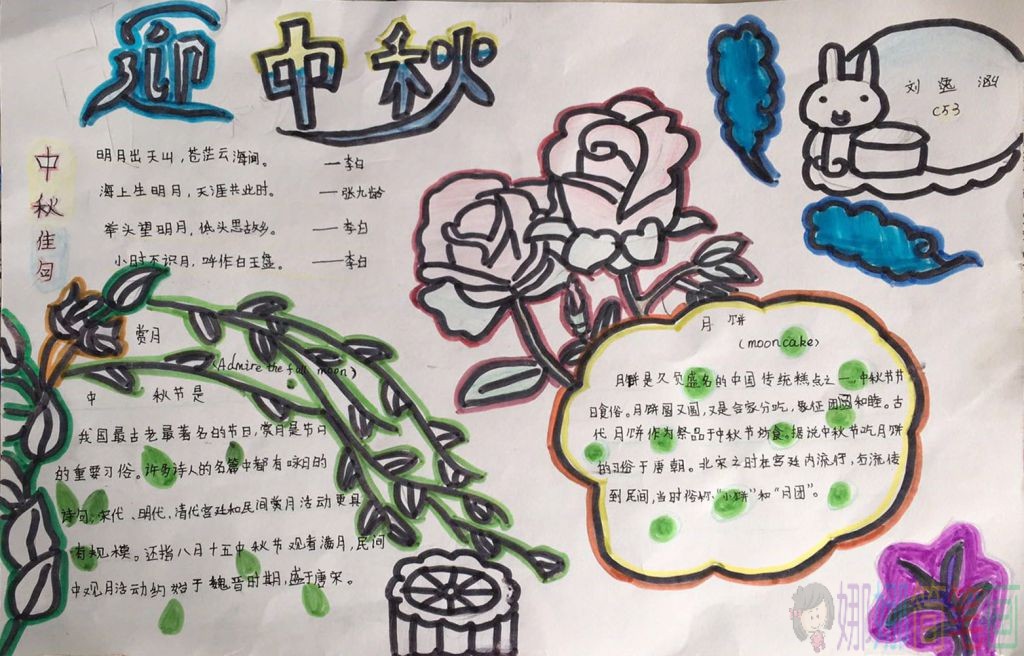 迎中秋
刘逸涵
C53
中秋佳句
明月出天山，苍茫云海间。 —李白
海上生明月，天涯共此时。 —张九龄
举头望明月，低头思故乡。 —李白
小时不识月，呼作白玉盘。 —李白
赏月
(Admire the full moon)
中 秋节是
我国最古老最著名的节日，赏月是节日
的重要习俗。许多诗人的名篇中都有咏月的
诗句，宋代、明代、清代宫廷和民间赏月活动更具
有规模。还指八月十五中秋节观看满月，民间
中观月活动约始于魏晋时期，盛于唐宋。
月饼
(mooncake)
月饼是久负盛名的中国传统糕点之一，中秋节节
日食俗。月饼圆又圆，又是合家分吃，象征团圆和睦。古
代月饼作为祭品于中秋节所食。据说中秋节吃月饼
的习俗于唐朝。北宋之时在宫廷内流行，后流传
到民间，当时俗称“小饼”和“月团”。